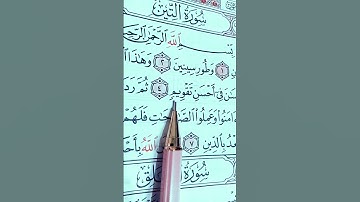 سُورَةُ التِّينِ
بِسْمِ اللَّهِ الرَّحْمَٰنِ الرَّحِ
١ وَطُورِ سِينِينَ ٢ وَهَٰذَا
فِي أَحْسَنِ تَقْوِيمٍ ٤ ثُمَّ رَدَ
آمَنُوا وَعَمِلُوا الصَّالِحَاتِ فَلَهُمْ
بِالدِّينِ ٧ اللَّهُ بِأَحْ
سُورَةُ